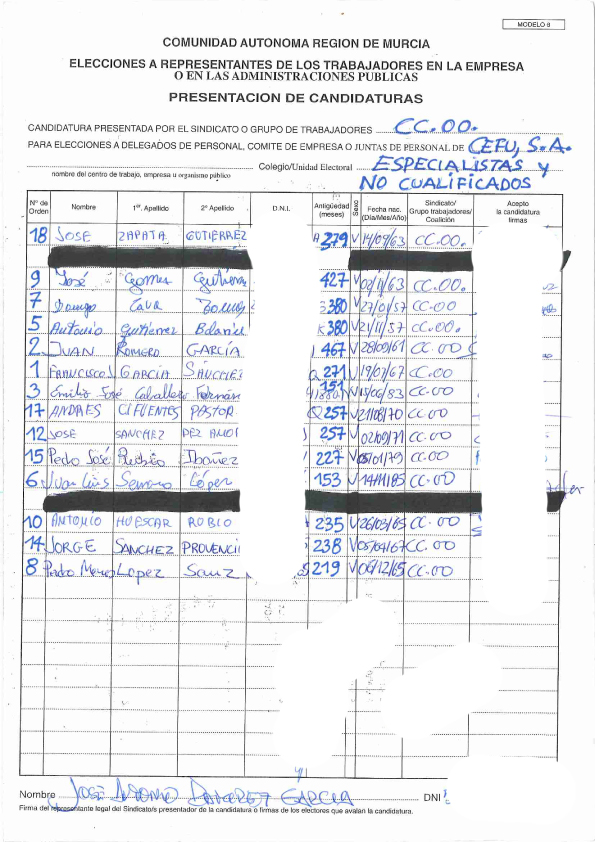 MODELO 6
COMUNIDAD AUTONOMA REGION DE MURCIA
ELECCIONES A REPRESENTANTES DE LOS TRABAJADORES EN LA EMPRESA
O EN LAS ADMINISTRACIONES PUBLICAS
PRESENTACION DE CANDIDATURAS
CANDIDATURA PRESENTADA POR EL SINDICATO O GRUPO DE TRABAJADORES CC.OO.
PARA ELECCIONES A DELEGADOS DE PERSONAL, COMITE DE EMPRESA O JUNTAS DE PERSONAL DE CEFU, S.A.
Colegio/Unidad Electoral ESPECIALISTAS y
nombre del centro de trabajo, empresa u organismo público
NO CUALIFICADOS
Nº de Orden Nombre 1er. Apellido 2º Apellido D.N.I. Antigüedad (meses) Sexo Fecha nac. (Día/Mes/Año) Sindicato/ Grupo trabajadores/ Coalición Acepto la candidatura firmas
18 JOSE ZAPATA GUTIERREZ 279 V 14/09/63 CC.OO.
9 José Gomez Gutiérrez 427 V 02/11/63 CC.OO.
7 Domingo Cava 380 V 27/01/57 CC-OO
5 Antonio Gutierrez 380 V 21/11/57 CC.OO.
2 JUAN ROMERO GARCÍA 467 V 28/09/61 CC.OO
1 FRANCISCO J GARCIA SÁNCHEZ 271 V 19/07/67 CC.OO
3 Emilio José Caballero 151 V 15/06/83 CC.OO
17 ANDRES CIFUENTES PASTOR 257 V 21/08/70 CC.OO
12 JOSE SANCHEZ 257 V 02/09/71 CC.OO
15 Pedro José Ibañez 227 V 05/01/79 CC.OO
6 Juan Luis Serrano López 153 V 14/11/85 CC.OO
10 ANTONIO HUESCAR RUBIO 235 V 26/03/65 CC.OO
14 JORGE SANCHEZ PROVENCI 238 V 05/04/67 CC.OO
8 Pedro Lopez Sanz 219 V 06/12/65 CC.OO
Nombre JOSÉ ANTONIO GARCIA DNI
Firma del representante legal del Sindicato/s presentador de la candidatura o firmas de los electores que avalan la candidatura.